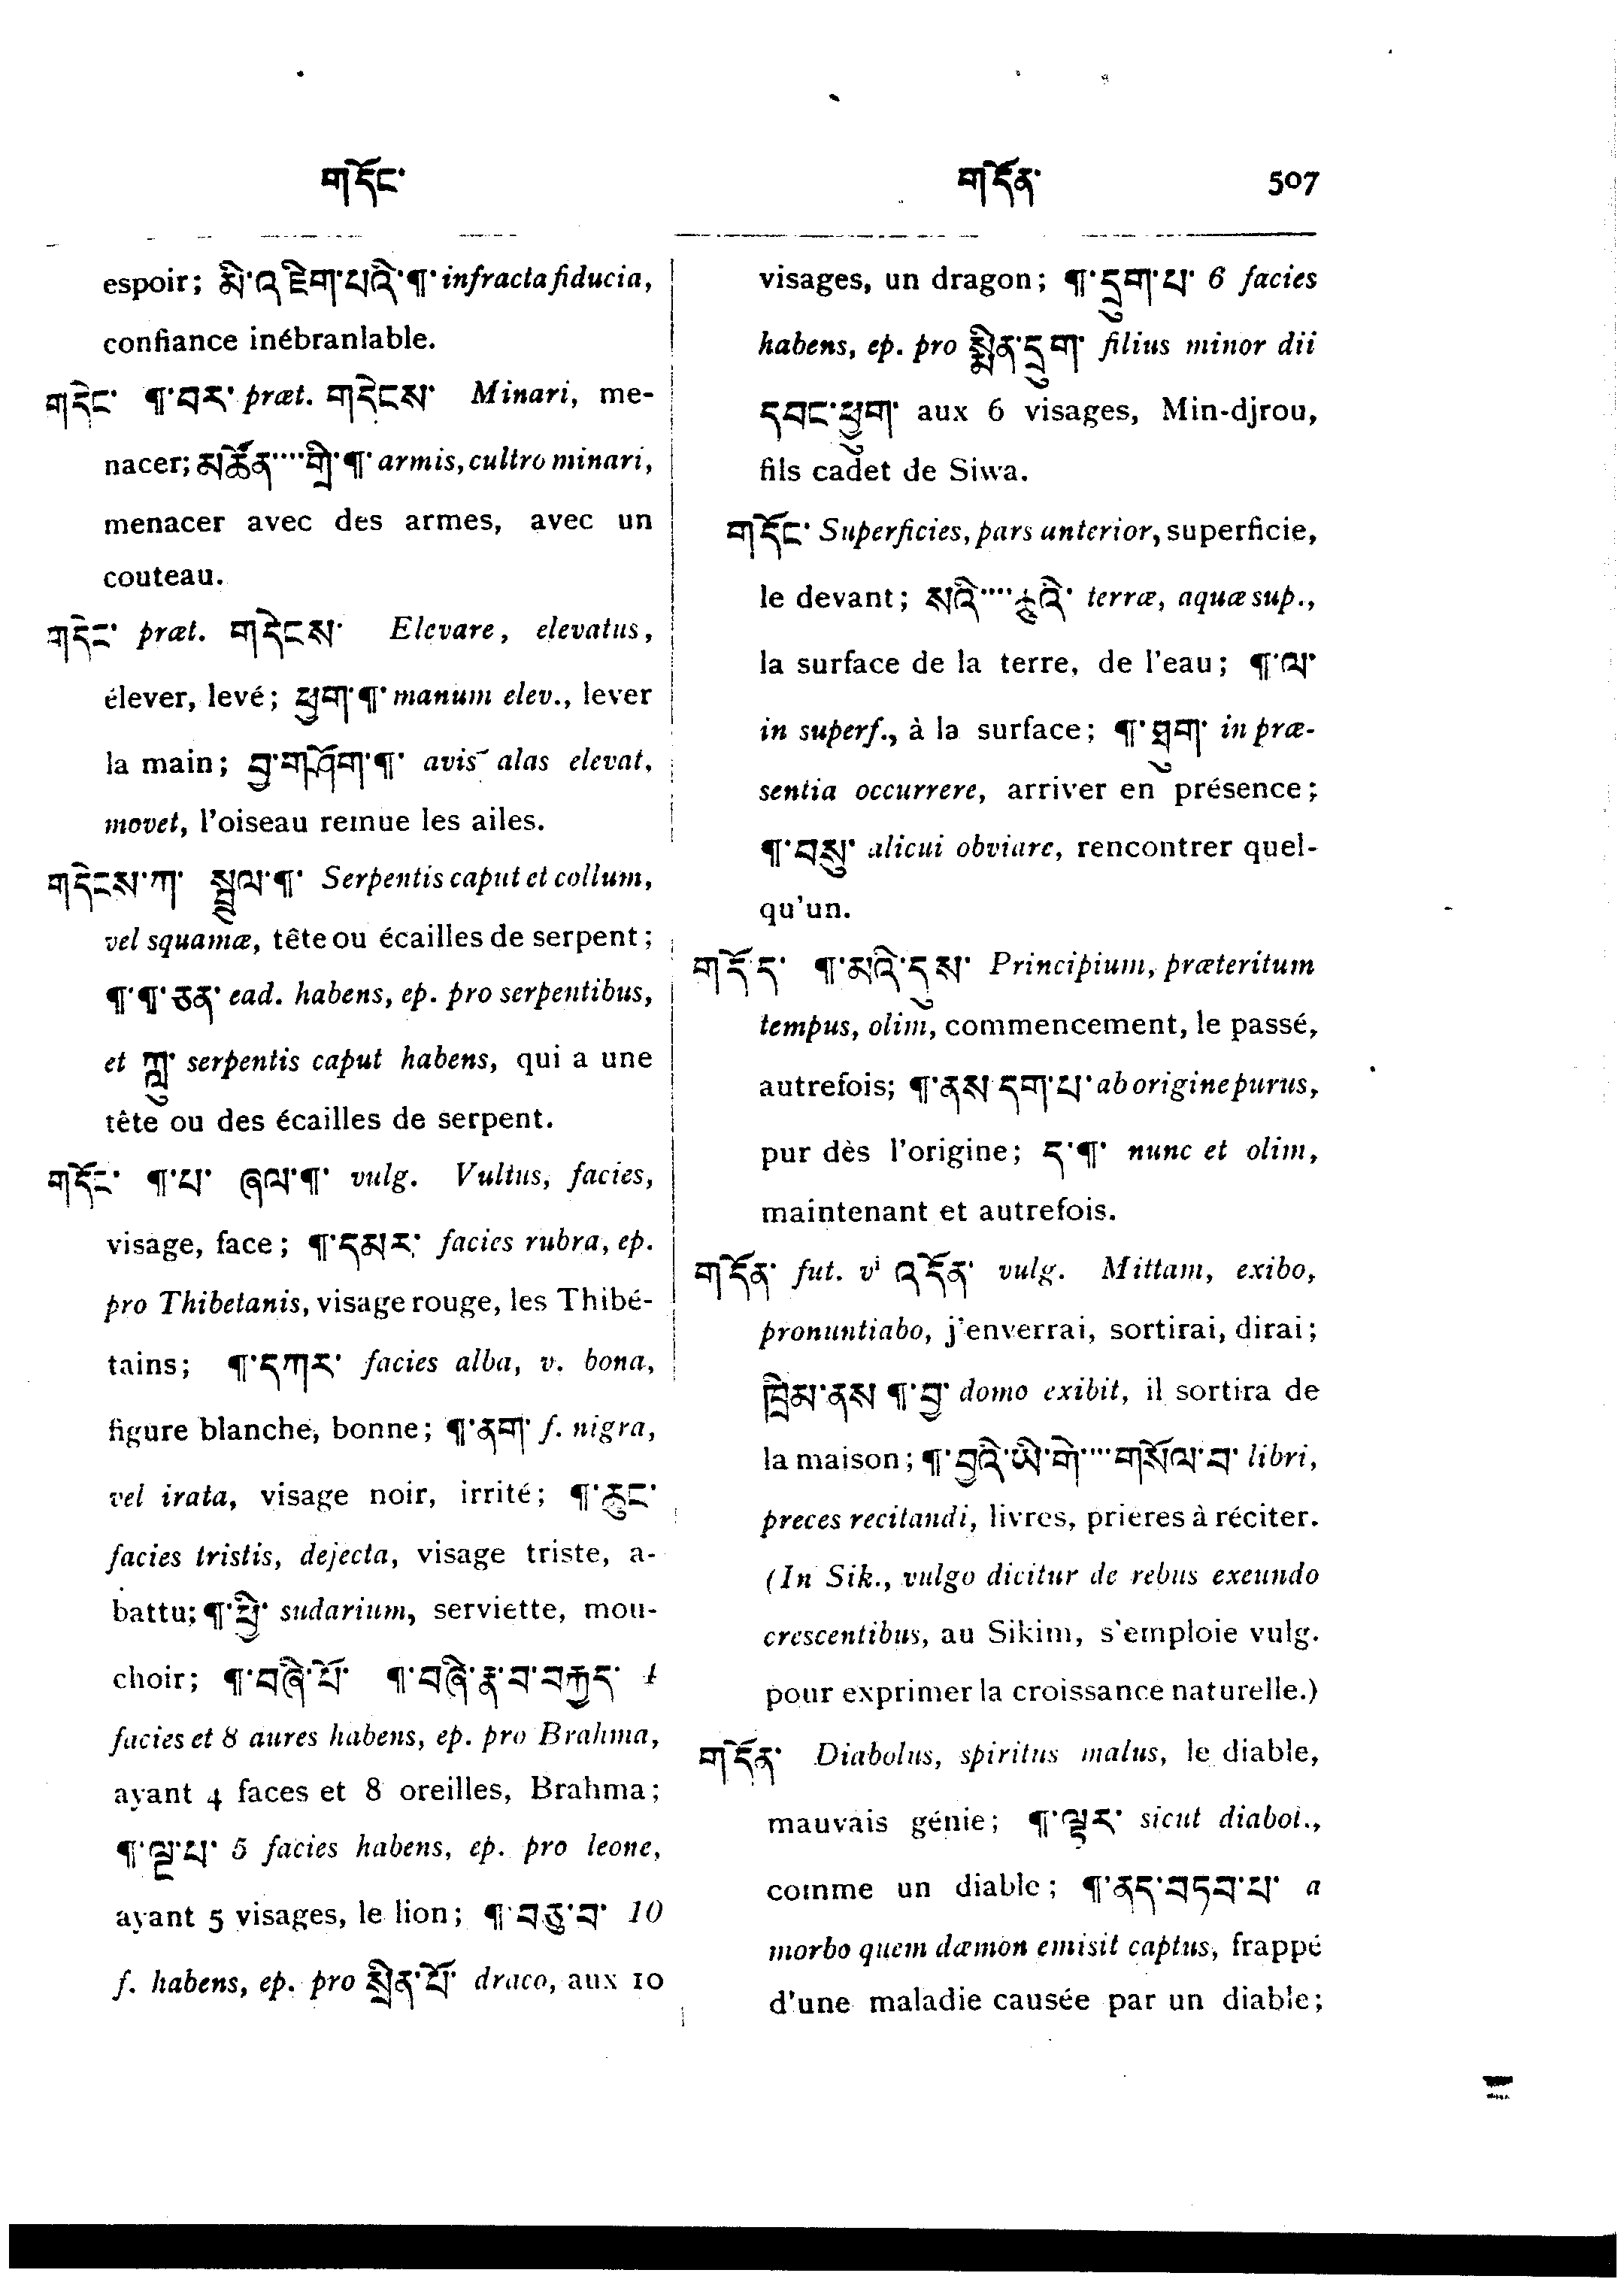 གདོང་ གདོན་ 507
espoir; མི་འཇིག་པའི་¶་ infracta fiducia,
confiance inébranlable.
གདེང་ ¶་བར་ præt. གདེངས་ Minari, me-
nacer; མཚོན་····གྲི་¶་ armis, cultro minari,
menacer avec des armes, avec un
couteau.
གདེང་ præt. གདེངས་ Elevare, elevatus,
élever, levé; ཕྱག་¶་ manum elev., lever
la main; བྱ་གཤོག་¶་ avis alas elevat,
movet, l'oiseau remue les ailes.
གདེངས་ཀ་ སྦྲུལ་¶་ Serpentis caput et collum,
vel squamæ, tête ou écailles de serpent;
¶་¶་ཅན་ ead. habens, ep. pro serpentibus,
et ཀླུ་ serpentis caput habens, qui a une
tête ou des écailles de serpent.
གདོང་ ¶་པ་ ཞལ་¶་ vulg. Vultus, facies,
visage, face; ¶་དམར་ facies rubra, ep.
pro Thibetanis, visage rouge, les Thibé-
tains; ¶་དཀར་ facies alba, v. bona,
figure blanche, bonne; ¶་ནག་ f. nigra,
vel irata, visage noir, irrité; ¶་ཆུང་
facies tristis, dejecta, visage triste, a-
battu; ¶་ཕྱི་ sudarium, serviette, mou-
choir; ¶་བཞི་པོ་ ¶་བཞི་རྣ་བ་བརྒྱད་ 4
facies et 8 aures habens, ep. pro Brahma,
ayant 4 faces et 8 oreilles, Brahma;
¶་ལྔ་པ་ 5 facies habens, ep. pro leone,
ayant 5 visages, le lion; ¶་བཅུ་བ་ 10
f. habens, ep. pro སྲིན་པོ་ draco, aux 10
visages, un dragon; ¶་དྲུག་པ་ 6 facies
habens, ep. pro སྨིན་དྲུག་ filius minor dii
དབང་ཕྱུག་ aux 6 visages, Min-djrou,
fils cadet de Siwa.
གདོང་ Superficies, pars anterior, superficie,
le devant; སའི་····ཆུའི་ terræ, aquæ sup.,
la surface de la terre, de l'eau; ¶་ལ་
in superf., à la surface; ¶་ཐུག་ in præ-
sentia occurrere, arriver en présence;
¶་བསུ་ alicui obviare, rencontrer quel-
qu'un.
གདོད་ ¶་མའི་དུས་ Principium, præteritum
tempus, olim, commencement, le passé,
autrefois; ¶་ནས་དག་པ་ ab origine purus,
pur dès l'origine; ད་¶་ nunc et olim,
maintenant et autrefois.
གདོན་ fut. vi འདོན་ vulg. Mittam, exibo,
pronuntiabo, j'enverrai, sortirai, dirai;
ཁྲིམ་ནས་¶་བྱ་ domo exibit, il sortira de
la maison; ¶་བྱའི་ཡི་གེ་····གསོལ་བ་ libri,
preces recitandi, livres, prieres à réciter.
(In Sik., vulgo dicitur de rebus exeundo
crescentibus, au Sikim, s'emploie vulg.
pour exprimer la croissance naturelle.)
གདོན་ Diabolus, spiritus malus, le diable,
mauvais génie; ¶་ལྟར་ sicut diabol.,
comme un diable; ¶་ནད་བཏབ་པ་ a
morbo quem dæmon emisit captus, frappé
d'une maladie causée par un diable;